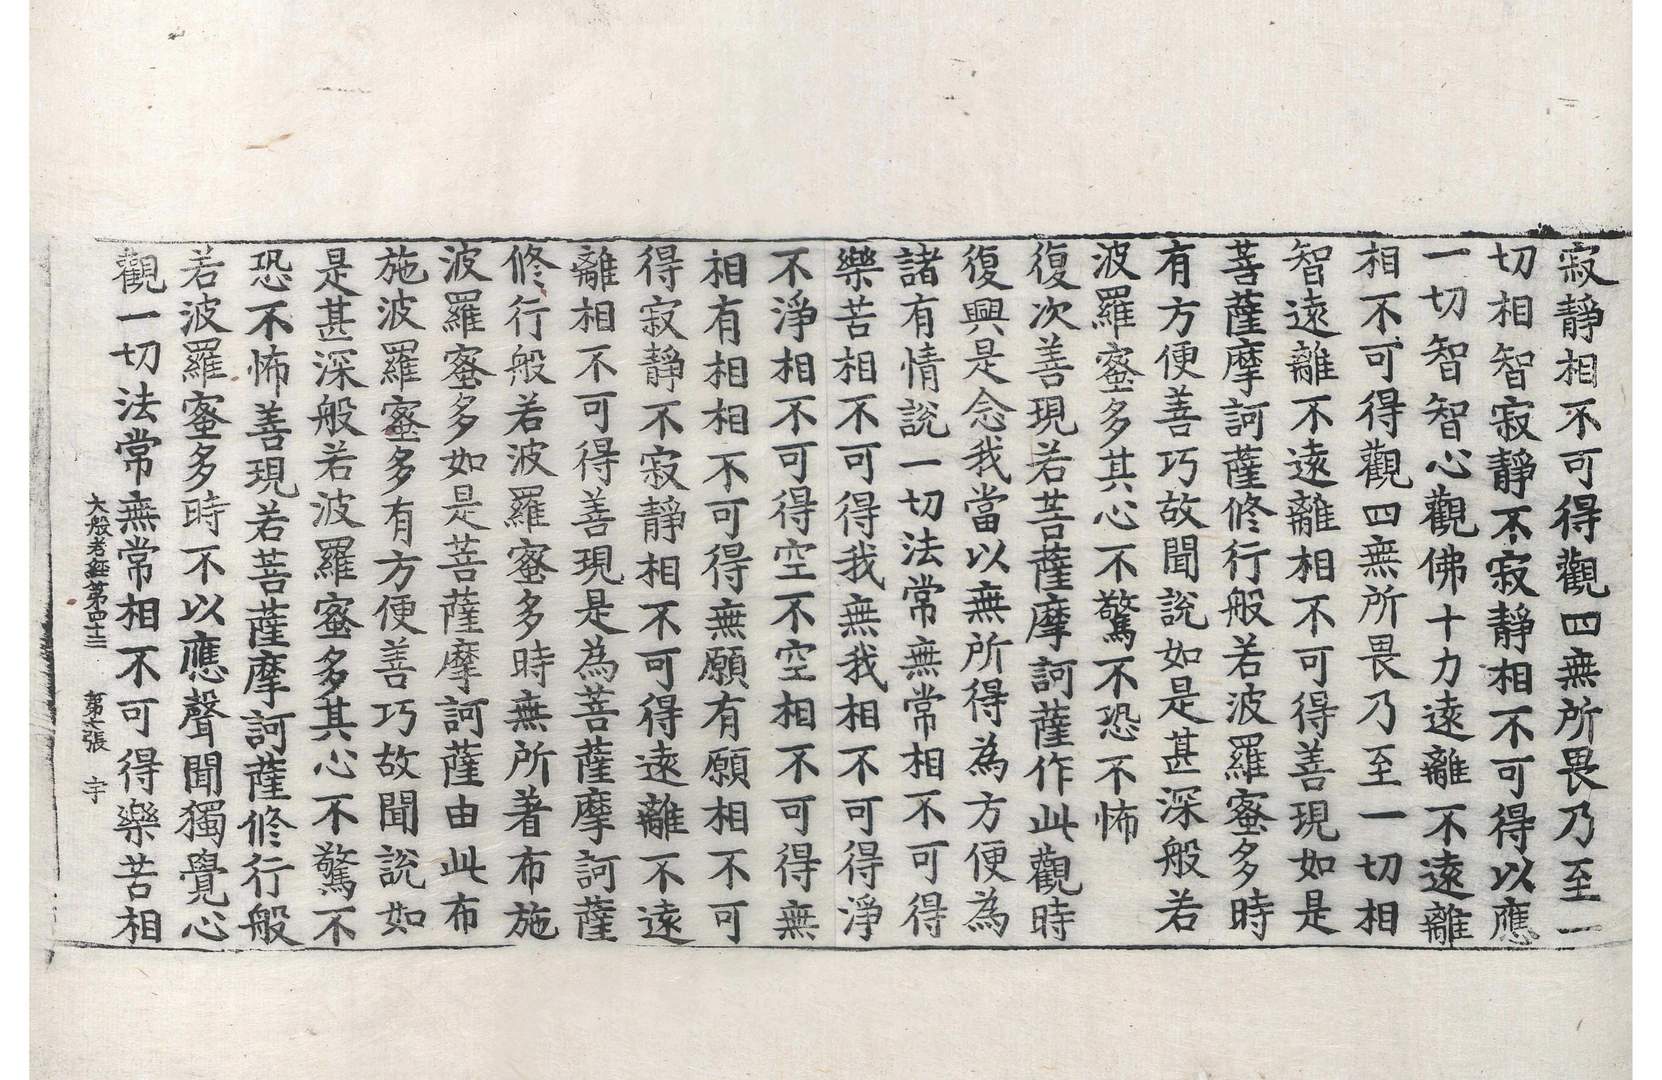 寂靜相不可得觀四無所畏乃至一
切相智寂靜不寂靜相不可得以應
一切智智心觀佛十力遠離不遠離
相不可得觀四無所畏乃至一切相
智遠離不遠離相不可得善現如是
菩薩摩訶薩修行般若波羅蜜多時
有方便善巧故聞說如是甚深般若
波羅蜜多其心不驚不恐不怖
復次善現若菩薩摩訶薩作此觀時
復興是念我當以無所得為方便為
諸有情說一切法常無常相不可得
樂苦相不可得我無我相不可得淨
不淨相不可得空不空相不可得無
相有相相不可得無願有願相不可
得寂靜不寂靜相不可得遠離不遠
離相不可得善現是為菩薩摩訶薩
修行般若波羅蜜多時無所著布施
波羅蜜多如是菩薩摩訶薩由此布
施波羅蜜多有方便善巧故聞說如
是甚深般若波羅蜜多其心不驚不
恐不怖善現若菩薩摩訶薩修行般
若波羅蜜多時不以應聲聞獨覺心
觀一切法常無常相不可得樂苦相
大般若經第四十三 第七張 宇